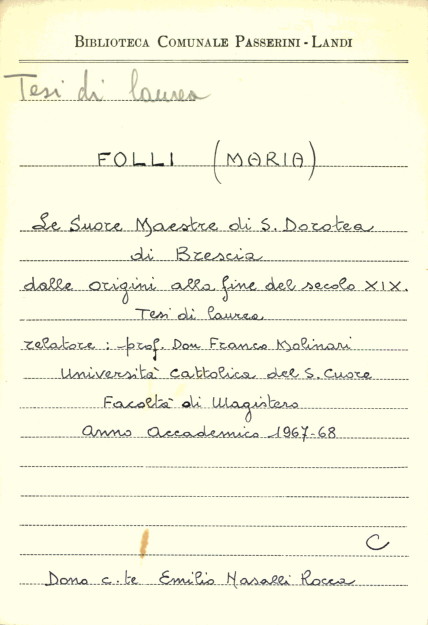 BIBLIOTECA COMUNALE PASSERINI - LANDI
Tesi di laurea
FOLLI (MARIA)
Le Suore Maestre di S. Dorotea
di Brescia
dalle origini alla fine del secolo XIX.
Tesi di laurea
relatore : prof. Don Franco Molinari
Università Cattolica del S. Cuore
Facoltà di Magistero
Anno Accademico 1967-68
C
Dono c.te Emilio Nasalli Rocca